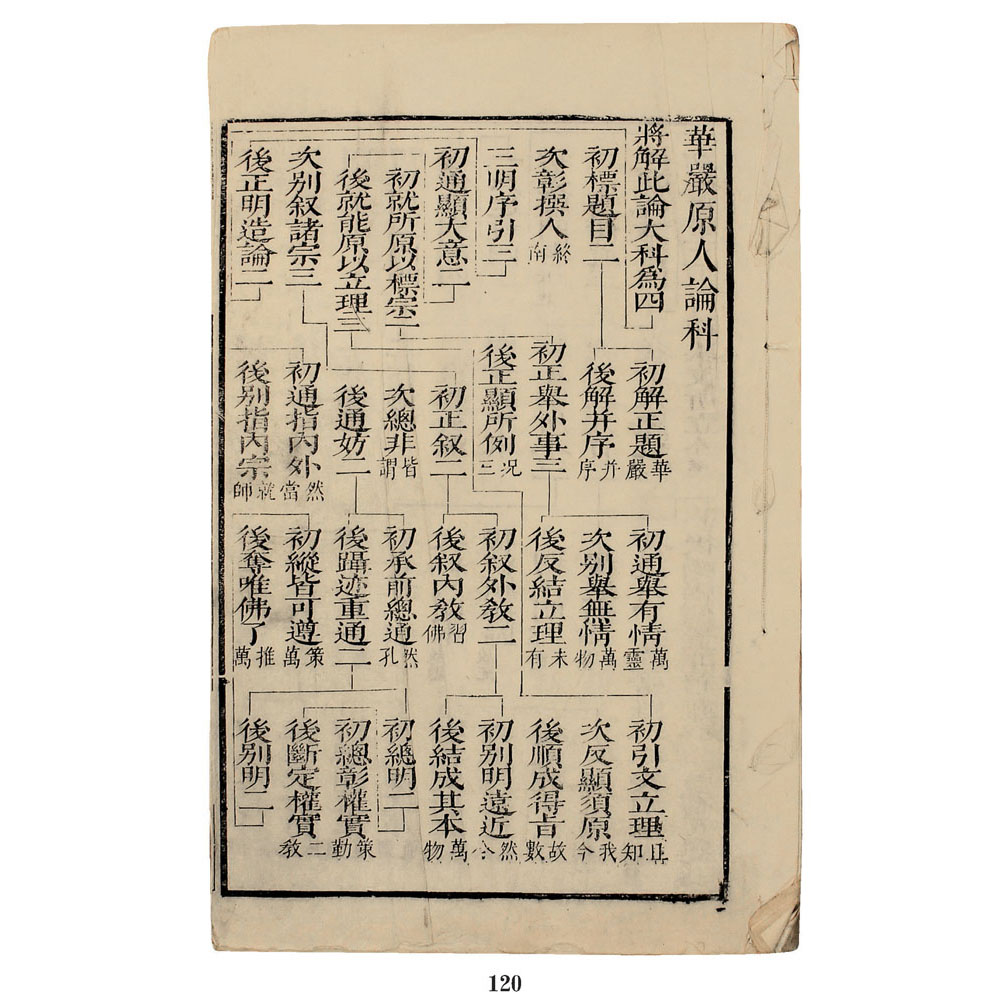 華嚴原人論科
將解此論大科爲四
初標題目二
次彰撰人終南
三明序引三
初通顯大意二
初就所原以標宗二
後就能原以立理三
次別叙諸宗三
後正明造論二
初解正題華嚴
後解并序并序
初正舉外事三
後正顯所例况三
初正叙二
次總非皆謂
後通妨二
初通指内外然當
後別指内宗就師
初通舉有情萬靈
次別舉無情萬物
後反結立理未有
初叙外教二
後叙内教習佛
初承前總通然孔
後躡迹重通二
初縱皆可遵策萬
後奪唯佛了推萬
初引文立理且知
次反顯須原我今
後順成得旨故數
初別明遠近然今
後結成其本萬物
初總明二
初總彰權實策勤
後斷定權實二教
後別明二
120